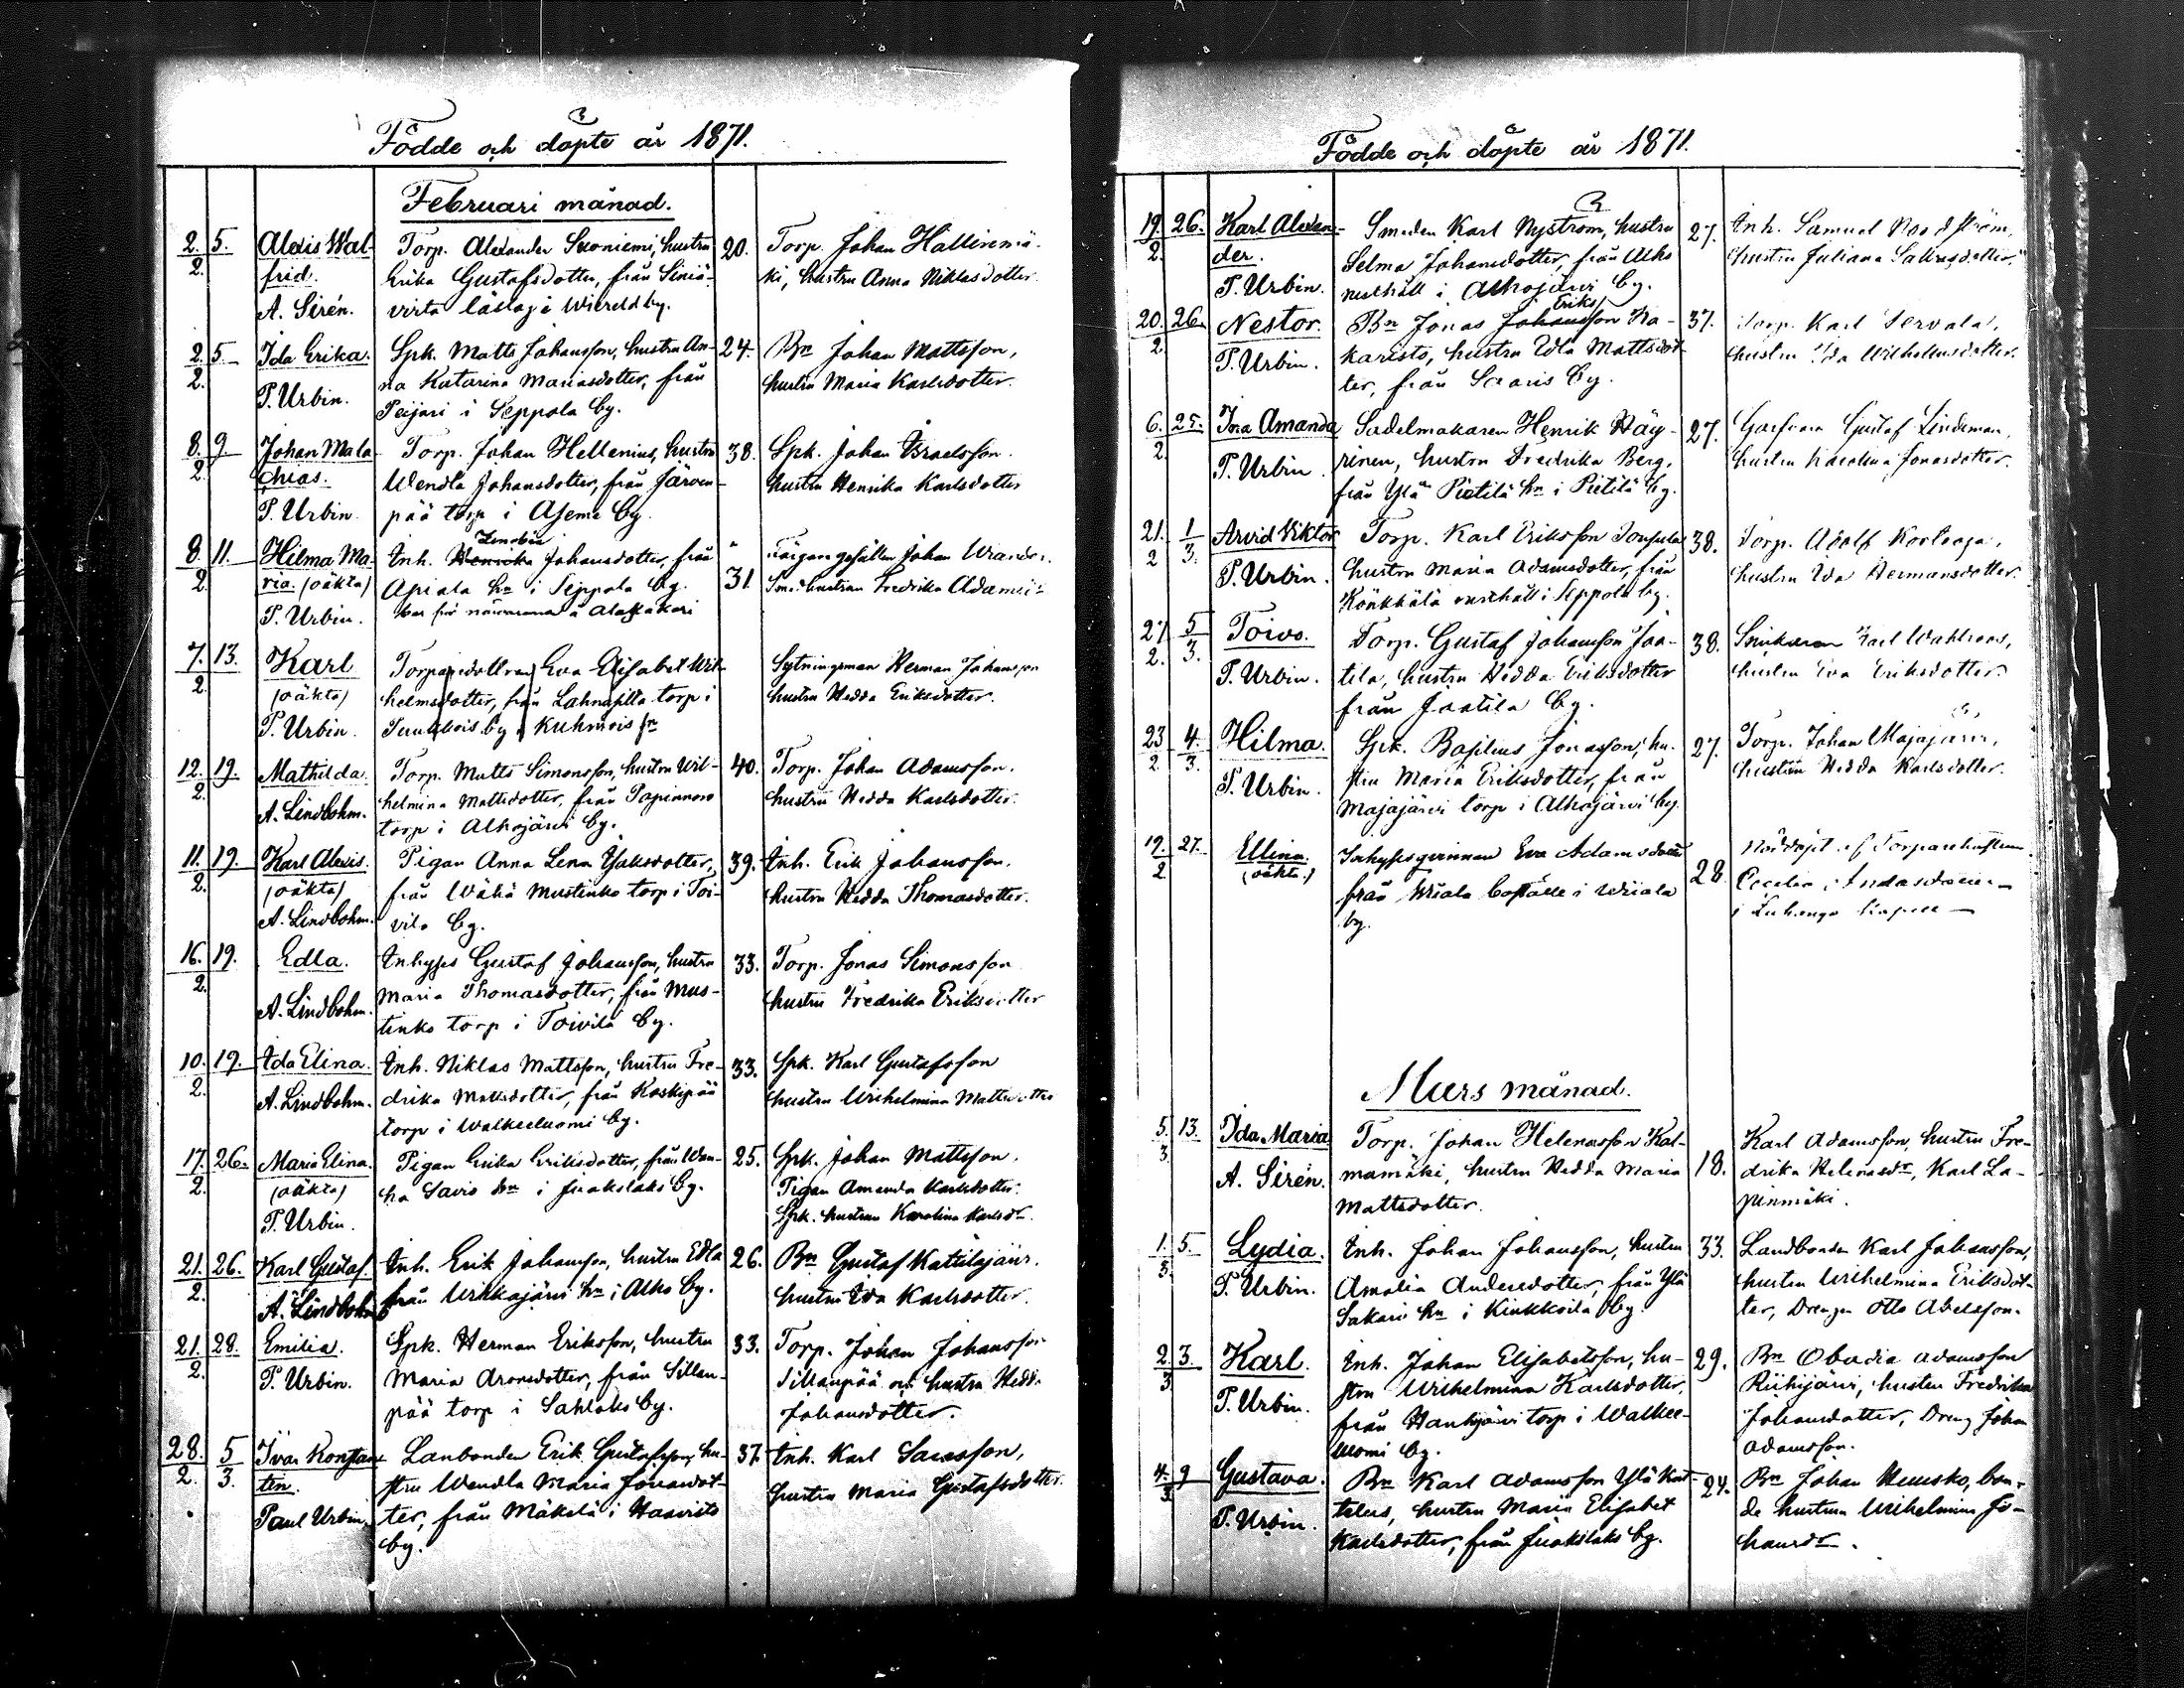 Födde och döpte år 1871.
Februari månad.
2. 5. Alexis Wal- Torp. Alexander Saoniemi, hustru 20. Torp. Johan Hallinmä-
2. frid. Erika Gustafsdotter, från Siniä- ki, hustru Anna Niklasdotter.
A. Sirén. virta by.
2. 5. Ida Erika. Spk. Matts Johansson, hustru An- 24. Bn Johan Mattsson,
2. P. Urbin. na Katarina Mariasdotter, från hustru Maria Karlsdotter.
Peijari i Seppola by.
8. 9. Johan Mala- Torp. Johan Hellenius, hustru 38. Spk. Johan Israelsson.
2. chias. Wendla Johansdotter, från Järven- hustru Henrika Karlsdotter
P. Urbin. pää torp i Asema by.
8. 11. Hilma Ma- Inh. Johansdotter, från Johan
2. ria. (oäkta) Apiala hn i Seppola by. 31. hustrun Fredrika
P. Urbin.
7. 13. Karl Torparedottren Eva Elisabet Wil- Sytningsman Herman Johansson
2. (oäkta) helmsdotter, från torp i hustru Hedda Eriksdotter.
P. Urbin. by i Kuhmois sn
12. 19. Mathilda. Torp. Matts Simonsson, hustru Wil- 40. Torp. Johan Adamsson.
2. A. Lindbohm. helmina Mattsdotter, från Papinnoro hustru Hedda Karlsdotter.
torp i Alhojärvi by.
11. 19. Karl Alexis. Pigan Anna Lena Isaksdotter, 39. Inh. Erik Johansson.
2. (oäkta) från Wähä Mustinko torp i Toi- hustru Hedda Thomasdotter.
A. Lindbohm. vila by.
16. 19. Edla. Inhyses Gustaf Johansson, hustru 33. Torp. Jonas Simonsson
2. A. Lindbohm. Maria Thomasdotter, från Mus- hustru Fredrika Eriksdotter
tinko torp i Toivila by.
10. 19. Ida Elina. Inh. Niklas Mattsson, hustru Fre- 33. Spk. Karl Gustafsson
2. A. Lindbohm. drika Mattsdotter, från Koskipää hustru Wilhelmina Mattsdotter
torp i Walkeeluomi by.
17. 26. Maria Elina. Pigan Erika Eriksdotter, från Wan- 25. Spk. Johan Mattsson.
2. (oäkta) ha Savio hn i Juokslaks by. Pigan Amanda Karlsdotter.
P. Urbin. Spk. hustrun Karolina Karlsdr.
21. 26. Karl Gustaf. Inh. Erik Johansson, hustru Edla 26. Bn Gustaf Kattilajärvi.
2. A. Lindbohm från Urikajärvi hn i Alho by. hustru Ida Karlsdotter.
21. 28. Emilia. Spk. Herman Eriksson, hustru 33. Torp. Johan Johansson
2. P. Urbin. Maria Aronsdotter, från Sillan- Sillanpää och hustru Hedda
pää torp i Sahloks by. Johansdotter.
28. 5 Ivar Konstan- Lanbonden Erik Gustafsson, hu- 37. Inh. Karl
2. 3. tin. stru Wendla Maria Jonasdot- hustru Maria Gustafsdotter.
Paul Urbin. ter, från Mäkelä i Haavisto
by.
Födde och döpte år 1871.
19. 26. Karl Alexan- Smeden Karl Nyström, hustru 27. Inh. Samuel Nordström,
2. der. Selma Johansdotter, från Alho hustru Juliana
P. Urbin. rusthåll i Alhojärvi by.
20. 26. Nestor. Bn Jonas Johansson Eriks 37. Torp. Karl Servala,
2. P. Urbin. hustru Edla Mattsdot- hustru Ida Wilhelmsdotter.
ter, från Saaris by.
6. 25. Ina Amanda Sadelmakaren Henrik Häy- 27. Garfvaren Gustaf Lindeman,
2. P. Urbin. rinen, hustru Fredrika Berg, hustru Karolina Jonasdotter.
från Ylä Pietilä hn i Pietilä by.
21. 1 Arvid Viktor Torp. Karl Eriksson 38. Torp. Adolf
2 3. P. Urbin. hustru Maria Adamsdotter, från hustru Ida Hermansdotter.
Könkkälä rusthåll i Seppola by.
27. 5 Toivo. Torp. Gustaf Johansson Jaa- 38. Karl
2. 3. P. Urbin. tila, hustru Hedda Eriksdotter hustru Eva Eriksdotter.
från Jaatila by.
23 4. Hilma. Spk. Basilius Jonasson, hu- 27. Torp. Johan Majajärvi,
2 3. P. Urbin. stru Maria Eriksdotter, från hustru Hedda Karlsdotter.
Majajärvi torp i Alhojärvi by.
19. 27. Ellina. Inhysesqvinnan Eva Adamsdotter Nöddöpt af Torparehustrun
2 (oäkta.) från Wiiala boställe i Wiiala 28. Cecilia
by.
Mars månad.
5. 13. Ida Maria Torp. Johan Helenasson Kal- Karl Adamsson, hustru Fre-
3. A. Sirén. mamäki, hustru Hedda Maria 18. drika Helenasdr, Karl La-
Mattsdotter. pinmäki.
1. 5. Lydia. Inh. Johan Johansson, hustru 33. Landbonden Karl Johansson,
3. P. Urbin. Amalia Andersdotter, från Ylä hustru Wilhelmina Eriksdot-
Sakari hn i Kinkkoila by. ter, Drengen Otto Abelsson.
2. 3. Karl. Inh. Johan Elisabetsson, hu- 29. Bn Obadia Adamsson
3 P. Urbin. stru Wilhelmina Karlsdotter, Riihijärvi, hustru Fredrika
från Hankijärvi torp i Walkee- Johansdotter, Dreng Johan
luomi by. Adamsson.
4. 9 Gustava. Bn Karl Adamsson Ylä 24. Bn Johan Heusko, bon-
3. P. Urbin. hustru Maria Elisabet de hustrun Wilhelmina Jo-
Karlsdotter, från Juokslaks by. hansdr.